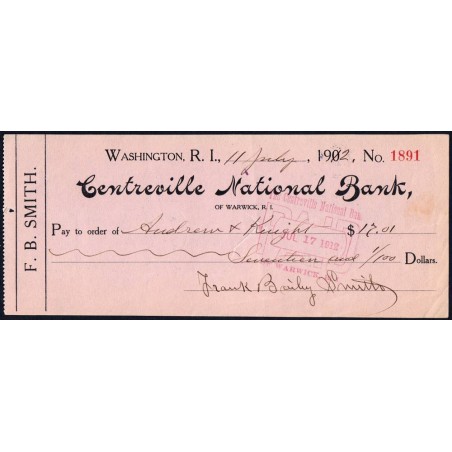 F. B. SMITH.
WASHINGTON, R. I., 11 July, 1912, No. 1891
Centreville National Bank,
OF WARWICK, R. I.
Pay to order of Andrew & Knight $17.01
Seventeen and 1/100 Dollars.
Frank Baily Smith
The Centreville National Ban
PAID
JUL 17 1912
WARWICK